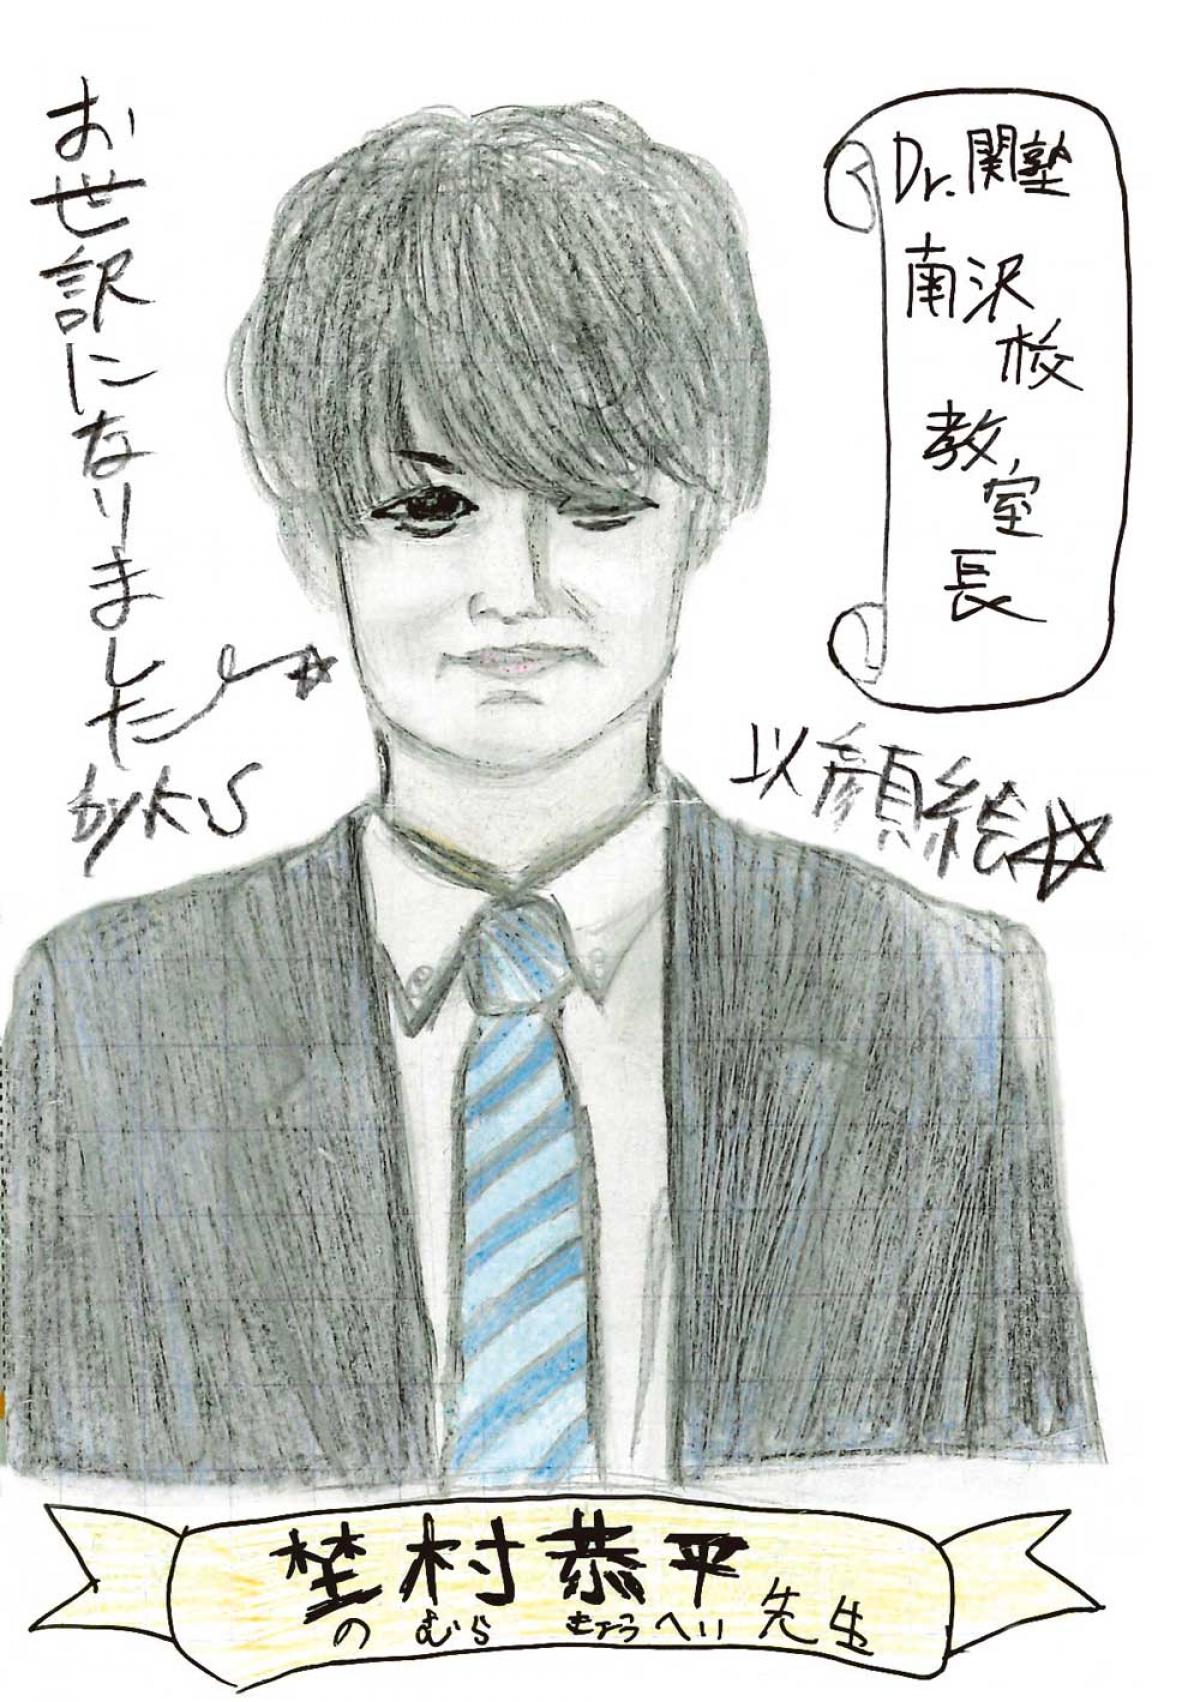 Dr.関塾
南沢
校
教室
長
お世訳になりました
by K.S
以顔絵☆
埜村恭平先生
のむら きょうへい